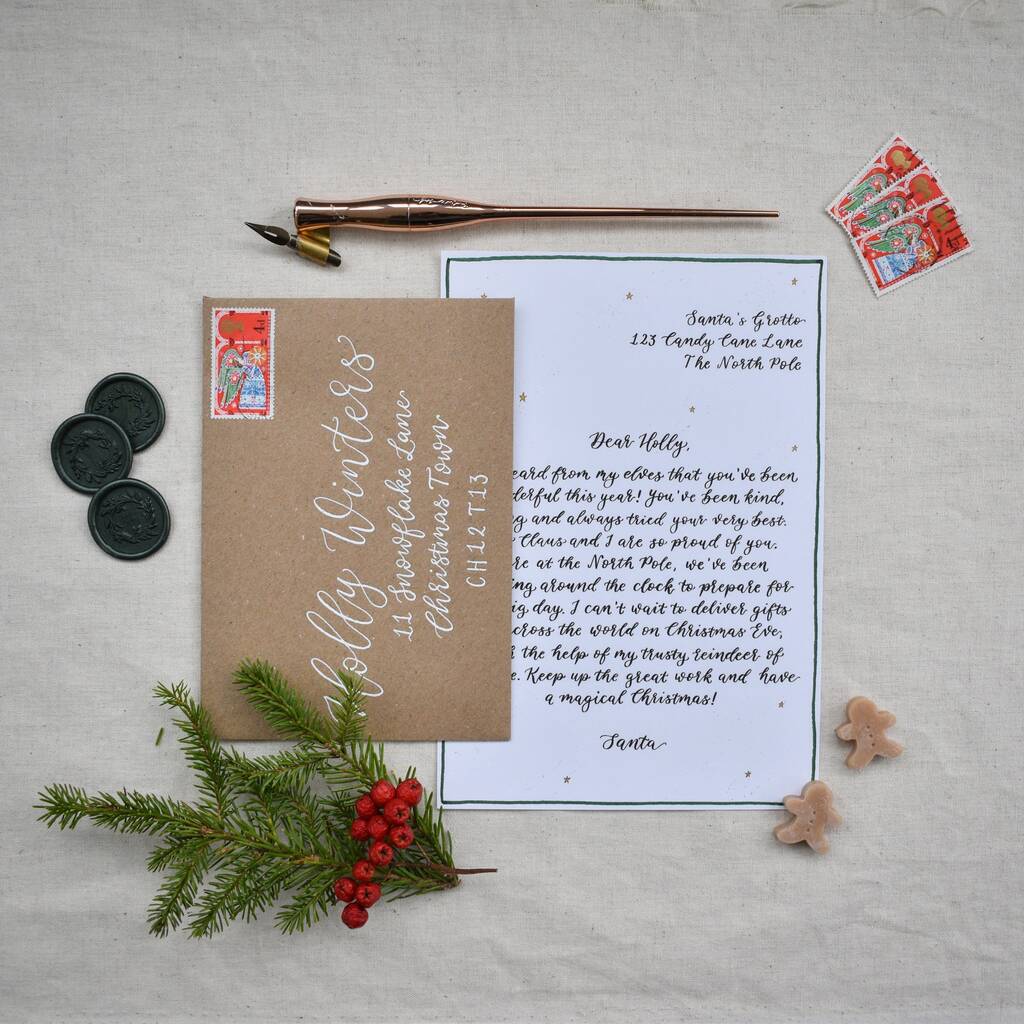 Santa's Grotto
123 Candy Cane Lane
The North Pole
Dear Holly,
from my elves that you've been
this year! You've been kind,
and always tried your very best.
Claus and I are so proud of you.
at the North Pole, we've been
around the clock to prepare for
day. I can't wait to deliver gifts
the world on Christmas Eve,
the help of my trusty reindeer of
Keep up the great work and have
a magical Christmas!
Santa
Holly Winters
11 Snowflake Lane
Christmas Town
CH12 T13
4d
4d